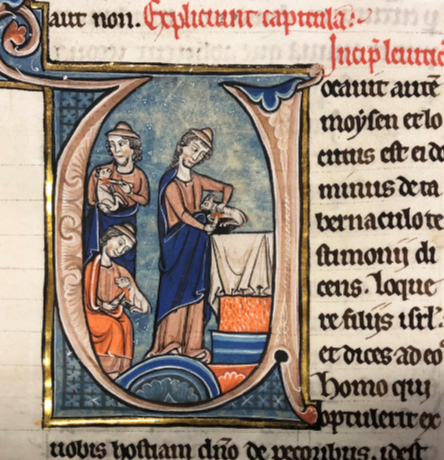 aut non. Expliciunt capitula:
Incip̄ leuitic
Uocauit autē
moysen et lo
cutus est ei do
minus de ta
bernaculo te
stimonij di
cens. loque
re filijs isrl̄.
et dices ad eo
homo qui
optulerit ex
uobis hostiam dn̄o de pecoribus. idest